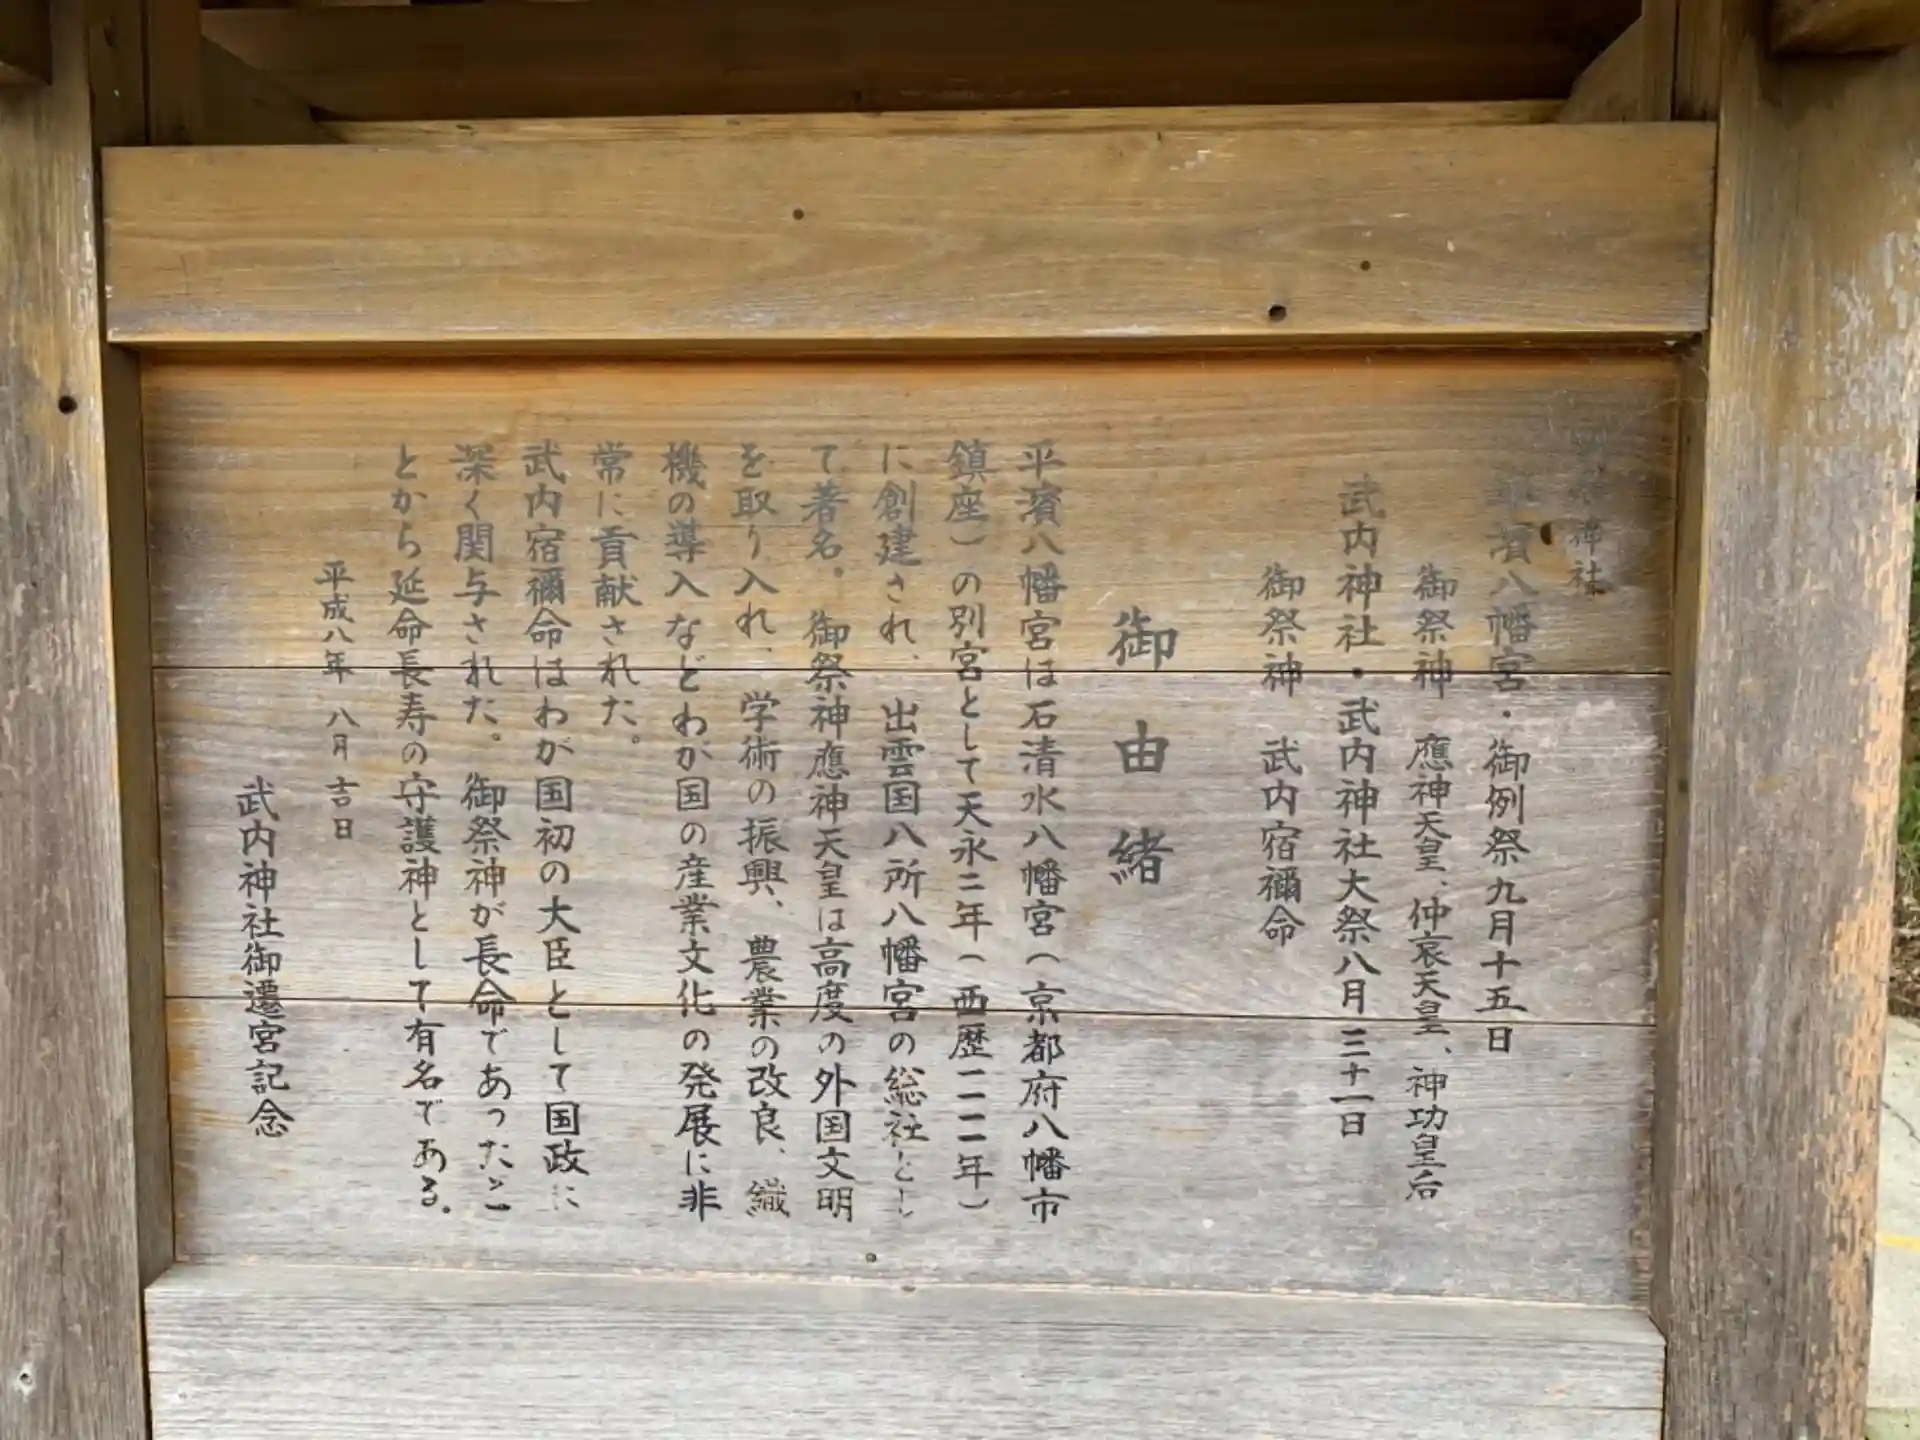 神社
濱八幡宮・御例祭九月十五日
御祭神 應神天皇、仲哀天皇、神功皇后
武内神社・武内神社大祭八月三十一日
御祭神 武内宿禰命
御由緒
平濱八幡宮は石清水八幡宮(京都府八幡市
鎮座)の別宮として天永二年(西歴一一一一年)
に創建され、出雲国八所八幡宮の総社とし
て著名。御祭神應神天皇は高度の外国文明
を取り入れ、学術の振興、農業の改良、織
機の導入などわが国の産業文化の発展に非
常に貢献された。
武内宿禰命はわが国初の大臣として国政に
深く関与された。御祭神が長命であったこ
とから延命長寿の守護神として有名である。
平成八年八月吉日
武内神社御遷宮記念